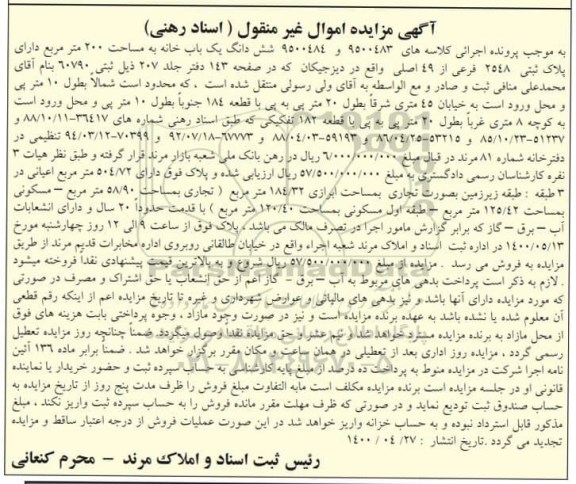 آگهی مزایده اموال غیر منقول ( اسناد رهنی)
به موجب پرونده اجرائی کلاسه های ۹۵۰۰۴۸۳ و ۹۵۰۰۴۸۴ شش دانگ یک باب خانه به مساحت ۲۰۰ متر مربع دارای
پلاک ثبتی ۲۵۴۸ فرعی از ۴۹ اصلی واقع در دیزجیکان که در صفحه ۱۴۳ دفتر جلد ۲۰۷ ذیل ثبتی ۶۰۷۹۰ بنام آقای
محمدعلی منافی ثبت و صادر و مع الواسطه به آقای ولی رسولی منتقل شده است ، که محدود است شمالاً بطول ۱۰ متر پی
و محل ورود است به خیابان ۴۵ متری شرقاً بطول ۲۰ متر پی به پی با قطعه ۱۸۴ جنوباً بطول ۱۰ متر پی و محل ورود است
به کوچه ۸ متری غرباً بطول ۲۰ متر پی به پی با قطعه ۱۸۲ تفکیکی که طبق اسناد رهنی شماره های ۳۶۴۱۷-۸۸/۱۰/۱۱ و
۵۱۲۳۷-۸۵/۱۰/۲۳ و ۵۳۲۱۵-۸۶/۰۴/۲۵ و ۵۹۱۹۳-۸۸/۰۴/۰۳ و ۶۷۷۷۳-۹۲/۰۷/۱۸ و ۷۰۳۹۹-۹۴/۰۳/۱۲ تنظیمی در
دفترخانه شماره ۸۱ مرند در قبال مبلغ ۶/۰۰۰/۰۰۰/۰۰۰ ریال در رهن بانک ملی شعبه بازار مرند قرار گرفته و طبق نظر هیات ۳
نفره کارشناسان رسمی دادگستری به مبلغ ۵۷/۵۰۰/۰۰۰/۰۰۰ ریال ارزیابی شده و پلاک فوق دارای ۵۰۴/۷۲ متر مربع اعیانی در
۳ طبقه : طبقه زیرزمین بصورت تجاری بمساحت ابرازی ۱۸۴/۳۲ متر مربع ( تجاری بمساحت ۵۸/۹۰ متر مربع – مسکونی
بمساحت ۱۲۵/۴۲ متر مربع -طبقه اول مسکونی بمساحت ۱۲۰/۴۰ متر مربع ) با قدمت حدوداً ۲۰ سال و دارای انشعابات
آب – برق – گاز که برابر گزارش مامور اجرا در تصرف مالک می باشد . پلاک فوق از ساعت ۹ الی ۱۲ روز چهارشنبه مورخ
۱۴۰۰/۰۵/۱۳ در اداره ثبت اسناد و املاک مرند شعبه اجراء واقع در خیابان طالقانی روبروی اداره مخابرات قدیم مرند از طریق
مزایده به فروش می رسد . مزایده از مبلغ ۵۷/۵۰۰/۰۰۰/۰۰۰ ریال شروع و به بالاترین قیمت پیشنهادی نقدا فروخته میشود
. لازم به ذکر است پرداخت بدهی های مربوط به آب – برق – گاز اعم از حق انشعاب یا حق اشتراک و مصرف در صورتی
که مورد مزایده دارای آنها باشد و نیز بدهی های مالیاتی و عوارض شهرداری و غیره تا تاریخ مزایده اعم از اینکه رقم قطعی
آن معلوم شده یا نشده باشد به عهده برنده مزایده است و نیز در صورت وجود مازاد ، وجوه پرداختی بابت هزینه های فوق
از محل مازاد به برنده مزایده مسترد خواهد شد و نیم عشر و حق مزایده نقدا وصول میگردد. ضمناً چنانچه روز مزایده تعطیل
رسمی گردد ، مزایده روز اداری بعد از تعطیلی در همان ساعت و مکان مقرر برگزار خواهد شد . ضمناً برابر ماده ۱۳۶ آئین
نامه اجرا شرکت در مزایده منوط به پرداخت ده درصد از مبلغ پایه کارشناسی به حساب سپرده ثبت و حضور خریدار یا نماینده
قانونی او در جلسه مزایده است برنده مزایده مکلف است مابه التفاوت مبلغ فروش را ظرف مدت پنج روز از تاریخ مزایده به
حساب صندوق ثبت تودیع نماید و در صورتی که ظرف مهلت مقرر مانده فروش را به حساب سپرده ثبت واریز نکند ، مبلغ
مذکور قابل استرداد نبوده و به حساب خزانه واریز خواهد شد در این صورت عملیات فروش از درجه اعتبار ساقط و مزایده
تجدید می گردد .تاریخ انتشار : ۲۷/ ۰۴ / ۱۴۰۰
رئیس ثبت اسناد و املاک مرند – محرم کنعانی